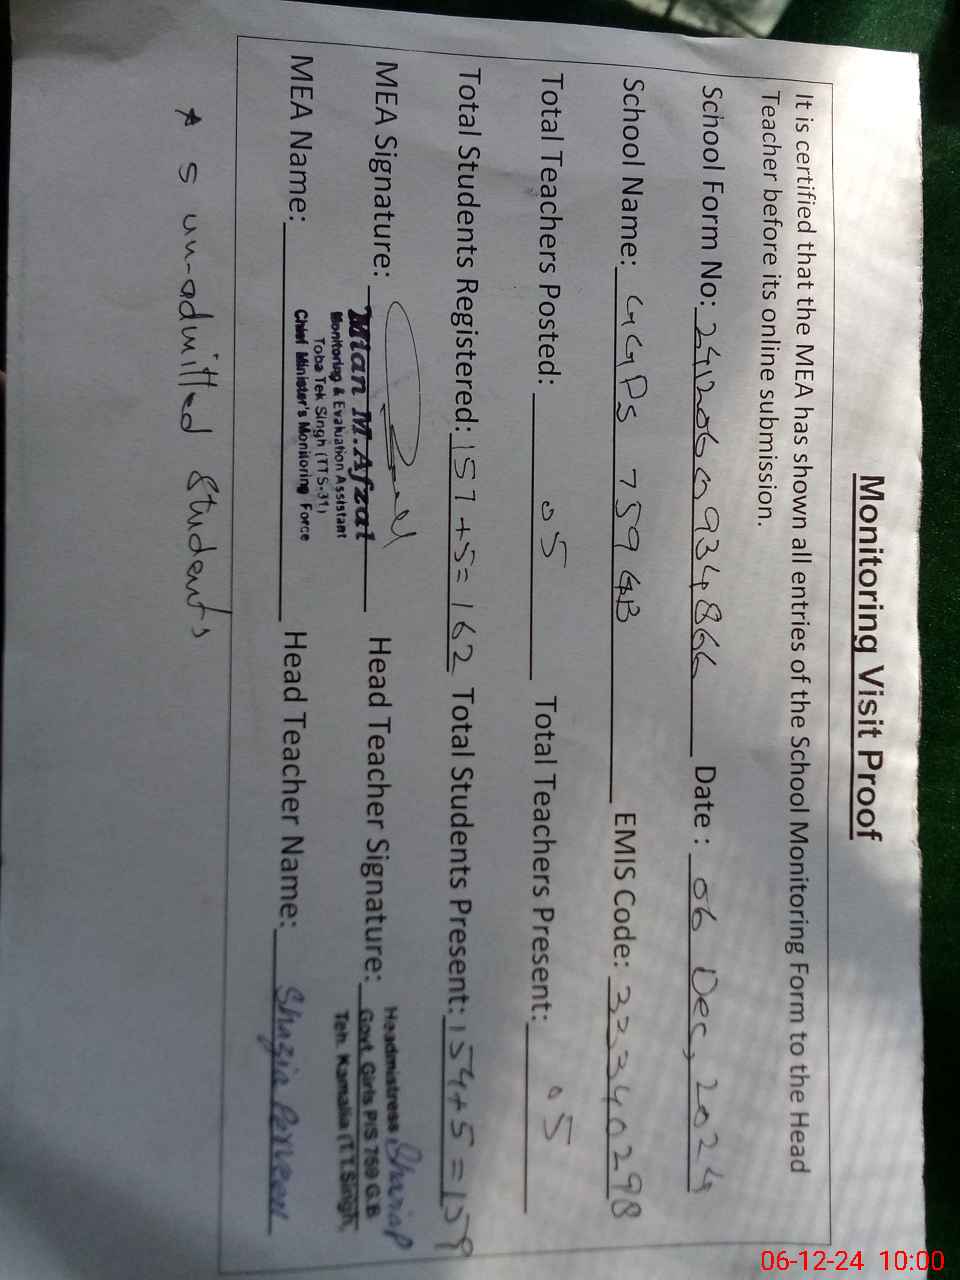 Monitoring Visit Proof
It is certified that the MEA has shown all entries of the School Monitoring Form to the Head
Teacher before its online submission.
School Form No: Date : 06 Dec, 2024
School Name: GGPS 759 GB EMIS Code: 33340298
Total Teachers Posted: 05 Total Teachers Present: 05
Total Students Registered: 157+5=162 Total Students Present: 154+5=159
MEA Signature: Head Teacher Signature:
Mian M.Afzal
Monitoring & Evaluation Assistant
Toba Tek Singh (TTS-31)
Chief Minister's Monitoring Force
Headmistress
Govt. Girls P/S 759 G.B
Teh. Kamalia (T.T.Singh)
MEA Name: Head Teacher Name: Shazia Parveen
* 5 un-admitted students
06-12-24 10:00